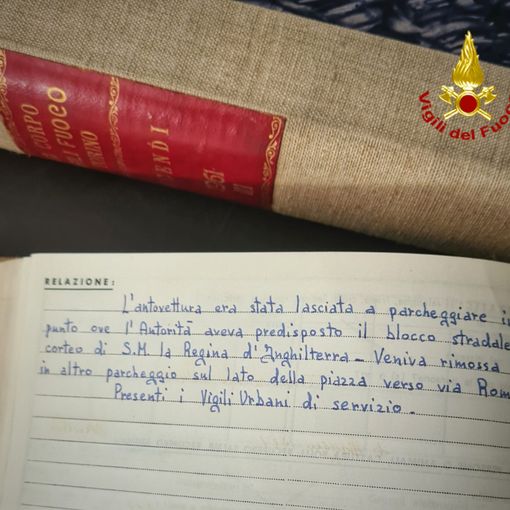 CORPO
FUOCO
1961
Vigili del Fuoco
RELAZIONE:
L'autovettura era stata lasciata a parcheggiare in
punto ove l'Autorità aveva predisposto il blocco stradale
corteo di S.M. la Regina d'Inghilterra – Veniva rimossa
in altro parcheggio sul lato della piazza verso via Rom
Presenti i Vigili Urbani di servizio.